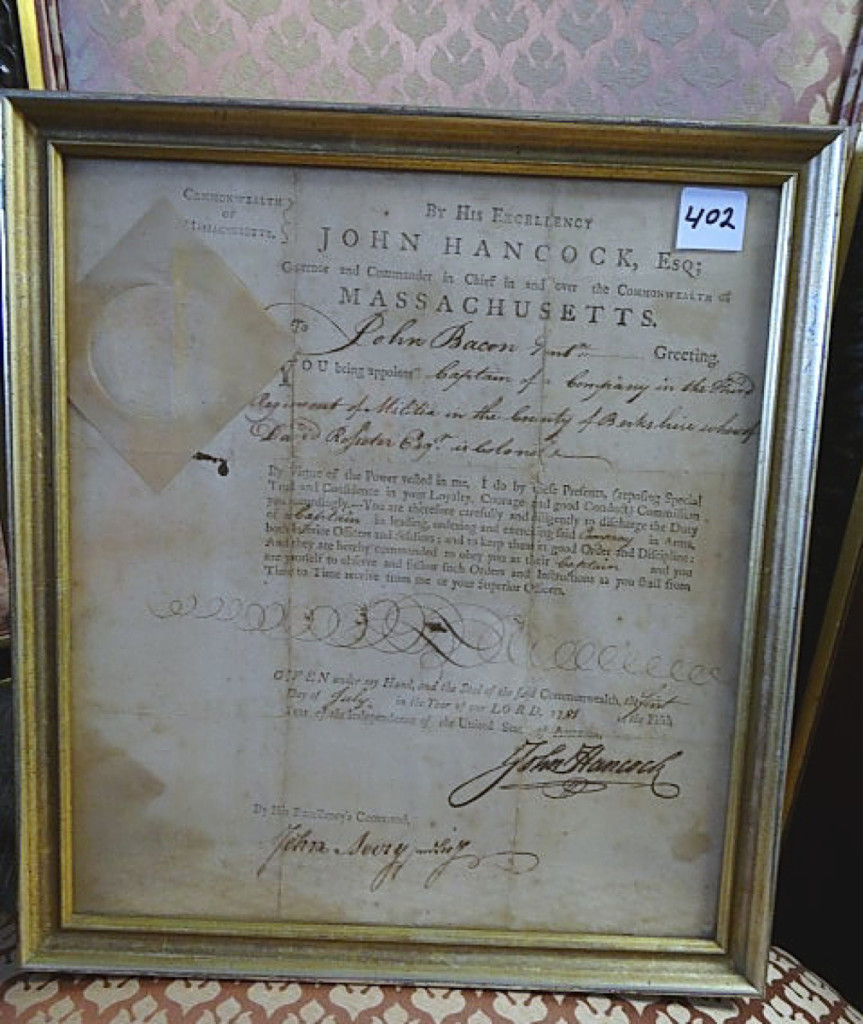 402
COMMONWEALTH
OF
MASSACHUSETTS.
BY HIS EXCELLENCY
JOHN HANCOCK, ESQ;
Governor and Commander in Chief in and over the COMMONWEALTH of
MASSACHUSETTS.
To John Bacon Gentⁿ Greeting.
YOU being appointed Captain of a Company in the Third
Regiment of Militia in the County of Berkshire whereof
David Rossiter Esqr. is Colonel
By Virtue of the Power vested in me, I do by these Presents, (reposing Special
Trust and Confidence in your Loyalty, Courage and good Conduct) Commission
you accordingly.—You are therefore carefully and diligently to discharge the Duty
of a Captain in leading, ordering and exercising said Company in Arms,
both Inferior Officers and Soldiers; and to keep them in good Order and Discipline:
And they are hereby commanded to obey you as their Captain and you
are yourself to observe and follow such Orders and Instructions as you shall from
Time to Time receive from me or your Superior Officers.
GIVEN under my Hand, and the Seal of the said Commonwealth, the First
Day of July. in the Year of our LORD, 1781 in the Fifth
Year of the Independence of the United States of America,
John Hancock
By His Excellency's Command,
John Avery